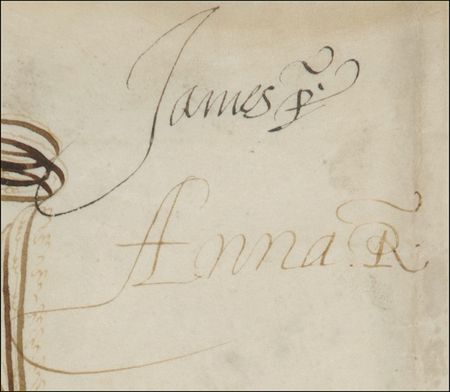 James R.
Anna R.